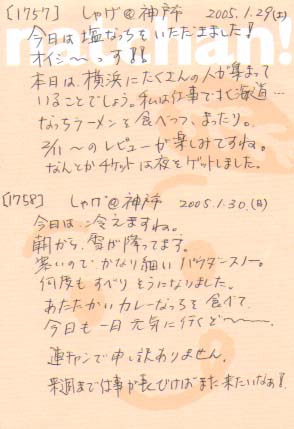 [1757] しゃけ@神戸 2005.1.29(土)
今日は塩なっちをいただきました!
オイシ〜っす!!
本日は、横浜にたくさんの人が集まって
いることでしょう。私は仕事で北海道…
なっちラーメンを食べつつ、まったり。
2/11〜のレビューが楽しみですね。
なんとかチケットは夜をゲットしました。
[1758] しゃけ@神戸 2005.1.30.(日)
今日は…冷えますね。
朝から、雪が降ってます。
寒いので かなり細い パウダースノー。
何度も すべりそうになりました。
あたたかいカレーなっちを食べて、
今日も一日 元気に行くぞ〜〜。
連チャンで申し訳ありません。
来週まで仕事が長びけばまた来たいなぁ!